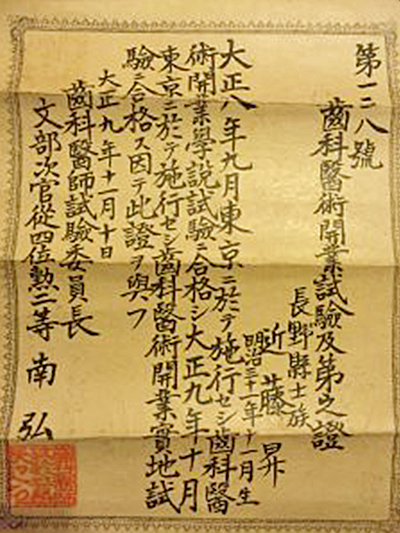 第一二八號
齒科醫術開業試驗及第之證
長野縣士族
近藤昇
明治三十一年十一月生
大正八年九月東京ニ於テ施行セシ齒科醫
術開業學說試驗ニ合格シ大正九年十月
東京ニ於テ施行セシ齒科醫術開業實地試
驗ニ合格ス因テ此證ヲ與フ
大正九年十一月十日
齒科醫師試驗委員長
文部次官從四位勲二等 南弘